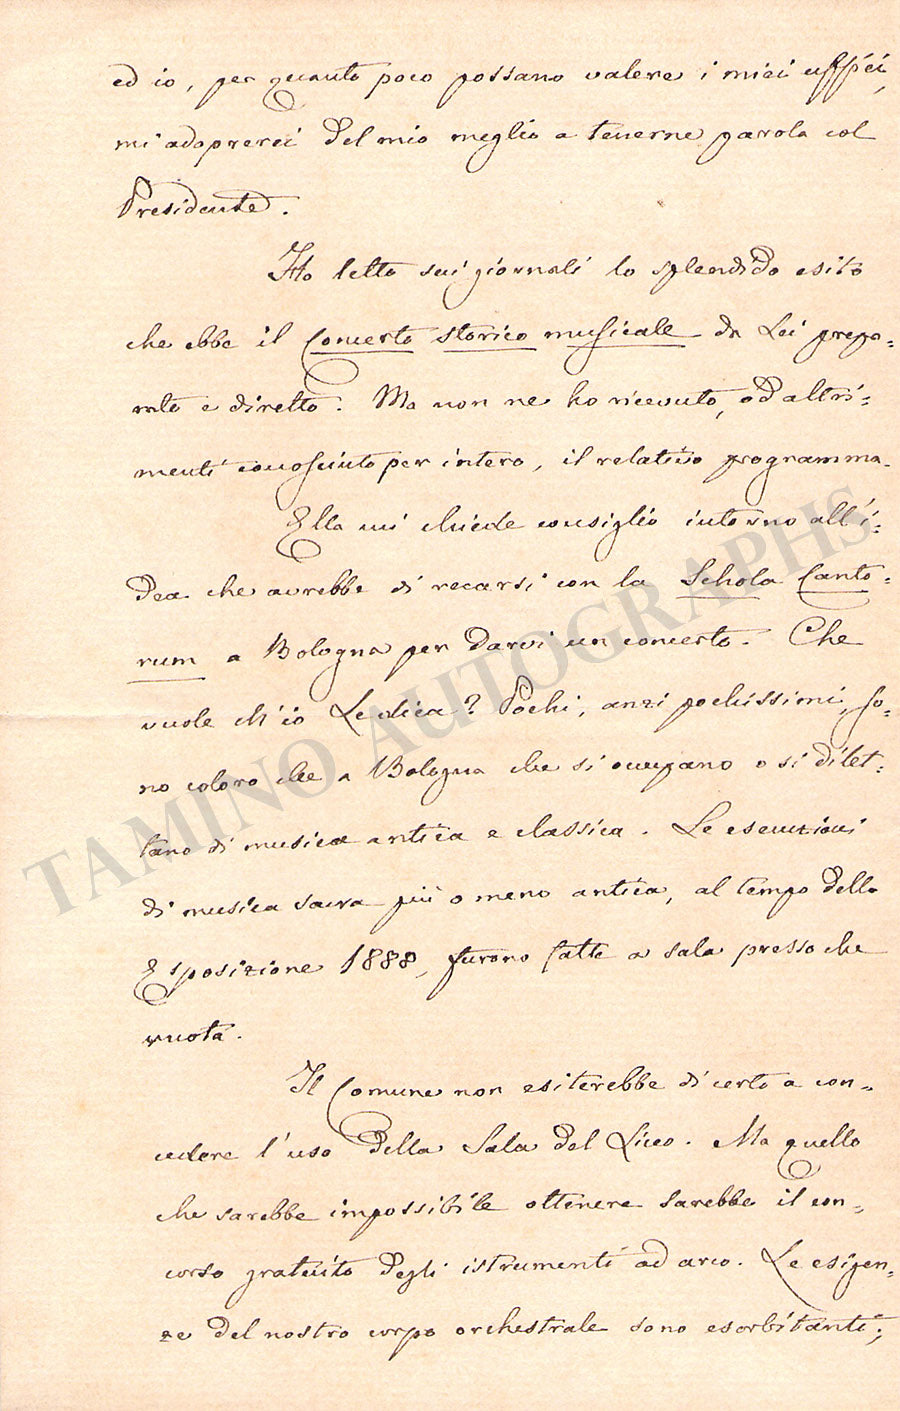 ed io, per quanto poco possano valere i miei ufficii,
mi adoprerei del mio meglio a tenerne parola col
Presidente.
Ho letto sui giornali lo splendido esito
che ebbe il Concerto storico musicale da Lei prepa-
rato e diretto. Ma non ne ho ricevuto, od altri-
menti conosciuto per intero, il relativo programma.
Ella mi chiede consiglio intorno all'i-
dea che avrebbe di recarsi con la Schola Canto-
rum a Bologna per darvi un concerto. Che
vuole ch'io Le dica? Pochi, anzi pochissimi, so-
no coloro che a Bologna che si occupano o si dilet-
tano di musica antica e classica. Le esecuzioni
di musica sacra più o meno antica, al tempo della
Esposizione 1888, furono fatte a sala presso che
vuota.
Il Comune non esiterebbe di certo a con-
cedere l'uso della Sala del Liceo. Ma quello
che sarebbe impossibile ottenere sarebbe il con-
corso gratuito degli istrumenti ad arco. Le esigen-
ze del nostro corpo orchestrale sono esorbitanti;
TAMINO AUTOGRAPHS